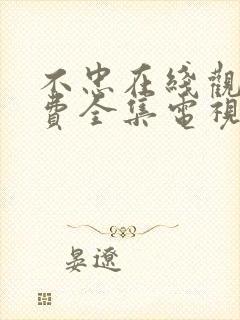 不忠在綫觀
費全集電視
晏遼